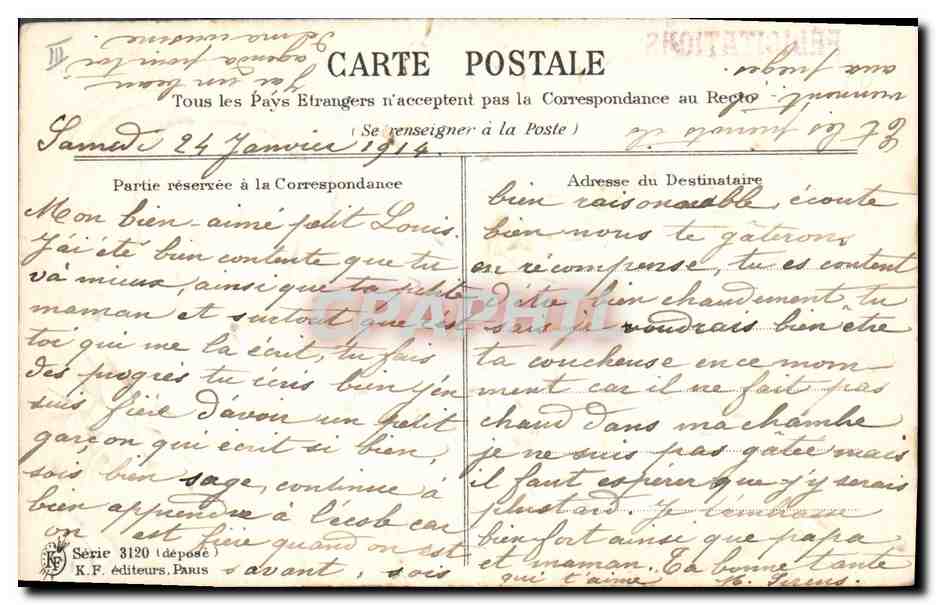 III
FELICITATIONS
CARTE POSTALE
Tous les Pays Etrangers n'acceptent pas la Correspondance au Recto
(Se renseigner à la Poste)
Samedi 24 Janvier 1914.
Partie réservée à la Correspondance
Mon bien-aimé petit Louis.
J'ai été bien contente que tu
va mieux, ainsi que ta petite
maman et surtout que c'est
toi qui me la écrit, tu fais
des progrès tu écris bien j'en
suis fière d'avoir un petit
garçon qui écrit si bien,
sois bien sage, continue à
bien apprendre à l'école car
on est fière quand on est
savant, sois
Adresse du Destinataire
bien raisonnable, écoute
bien nous te gâterons
en récompense, tu es content
d'être bien chaudement, tu
sais je voudrais bien être
ta coucheuse en ce mom
ment car il ne fait pas
chaud dans ma chambre
je ne suis pas gâtée mais
il faut espérer que j'y serais
plustard. Je t'embrasse
bien fort ainsi que papa
et maman. Ta bonne tante
qui t'aime M.
Et les
viennent
aux
J'ai un beau
agenda pour toi
et ma cuisine.
CPAPHIL
KF
Série 3120 (déposé)
K.F. éditeurs, PARIS